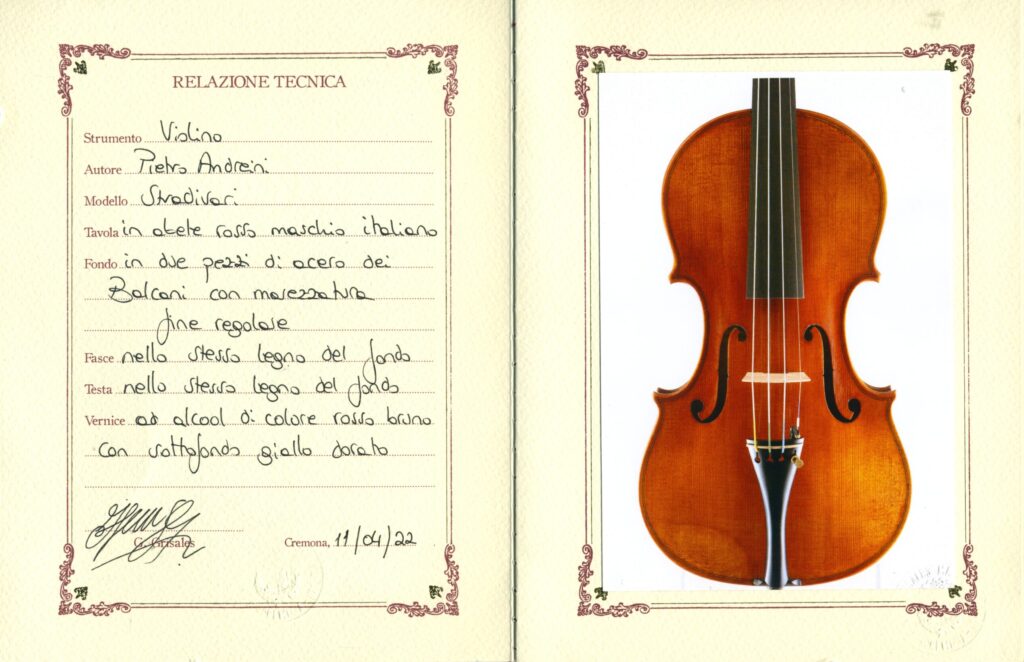 RELAZIONE TECNICA
Strumento Violino
Autore Pietro Andreini
Modello Stradivari
Tavola in abete rosso maschio italiano
Fondo in due pezzi di acero dei
Balcani con marezzatura
fine regolare
Fasce nello stesso legno del fondo
Testa nello stesso legno del fondo
Vernice ad alcool di colore rosso bruno
con sottofondo giallo dorato
G. Grisales
Cremona, 11/04/22